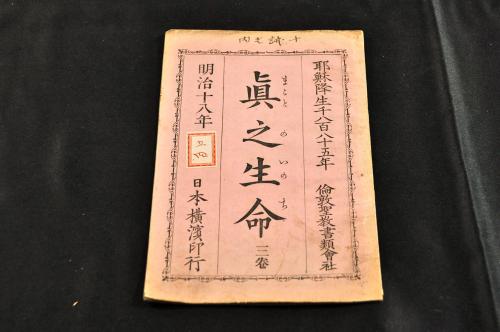 耶穌降生千八百八十五年 倫敦聖教書類會社
眞之生命 三卷
まことのいのち
明治十八年 日本橫濱印行